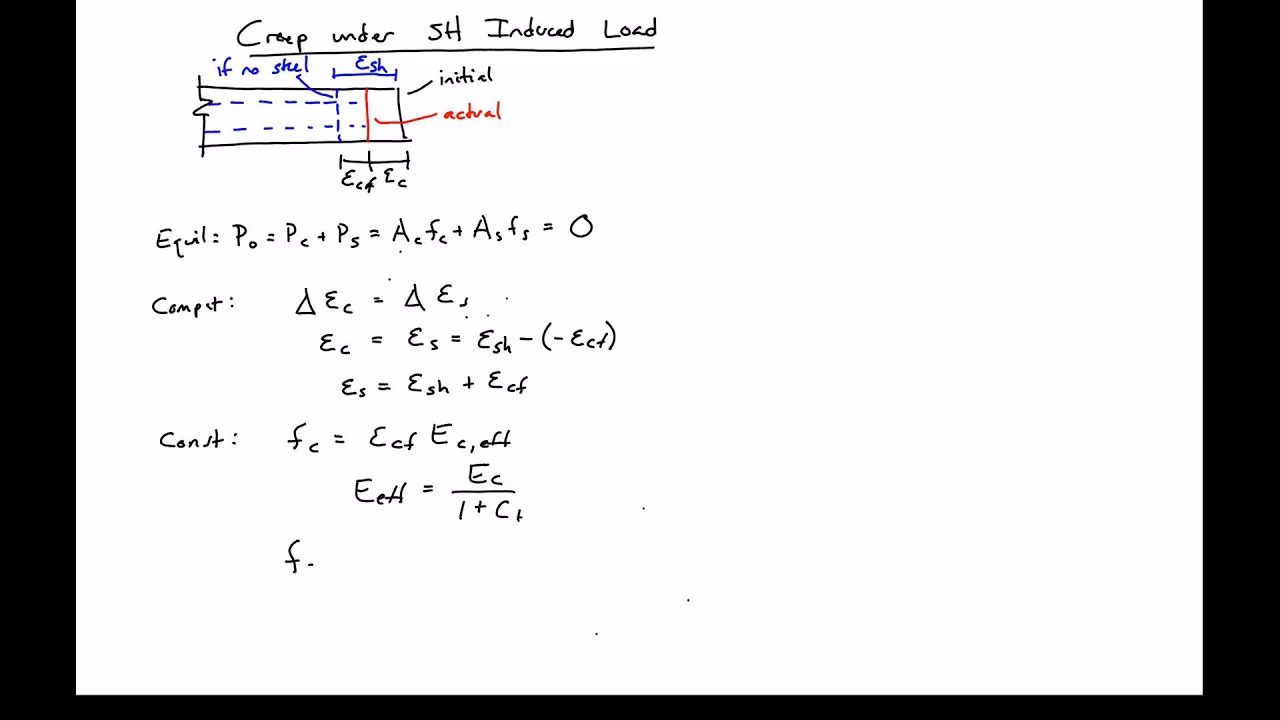 Creep under SH Induced Load
if no steel
εsh
initial
actual
εcf εc
Equil: P₀ = Pc + Ps = Ac fc + As fs = 0
Compat: Δ εc = Δ εs
εc = εs = εsh - (-εcf)
εs = εsh + εcf
Const: fc = εcf Ec,eff
Eeff = Ec / 1 + Ct
f